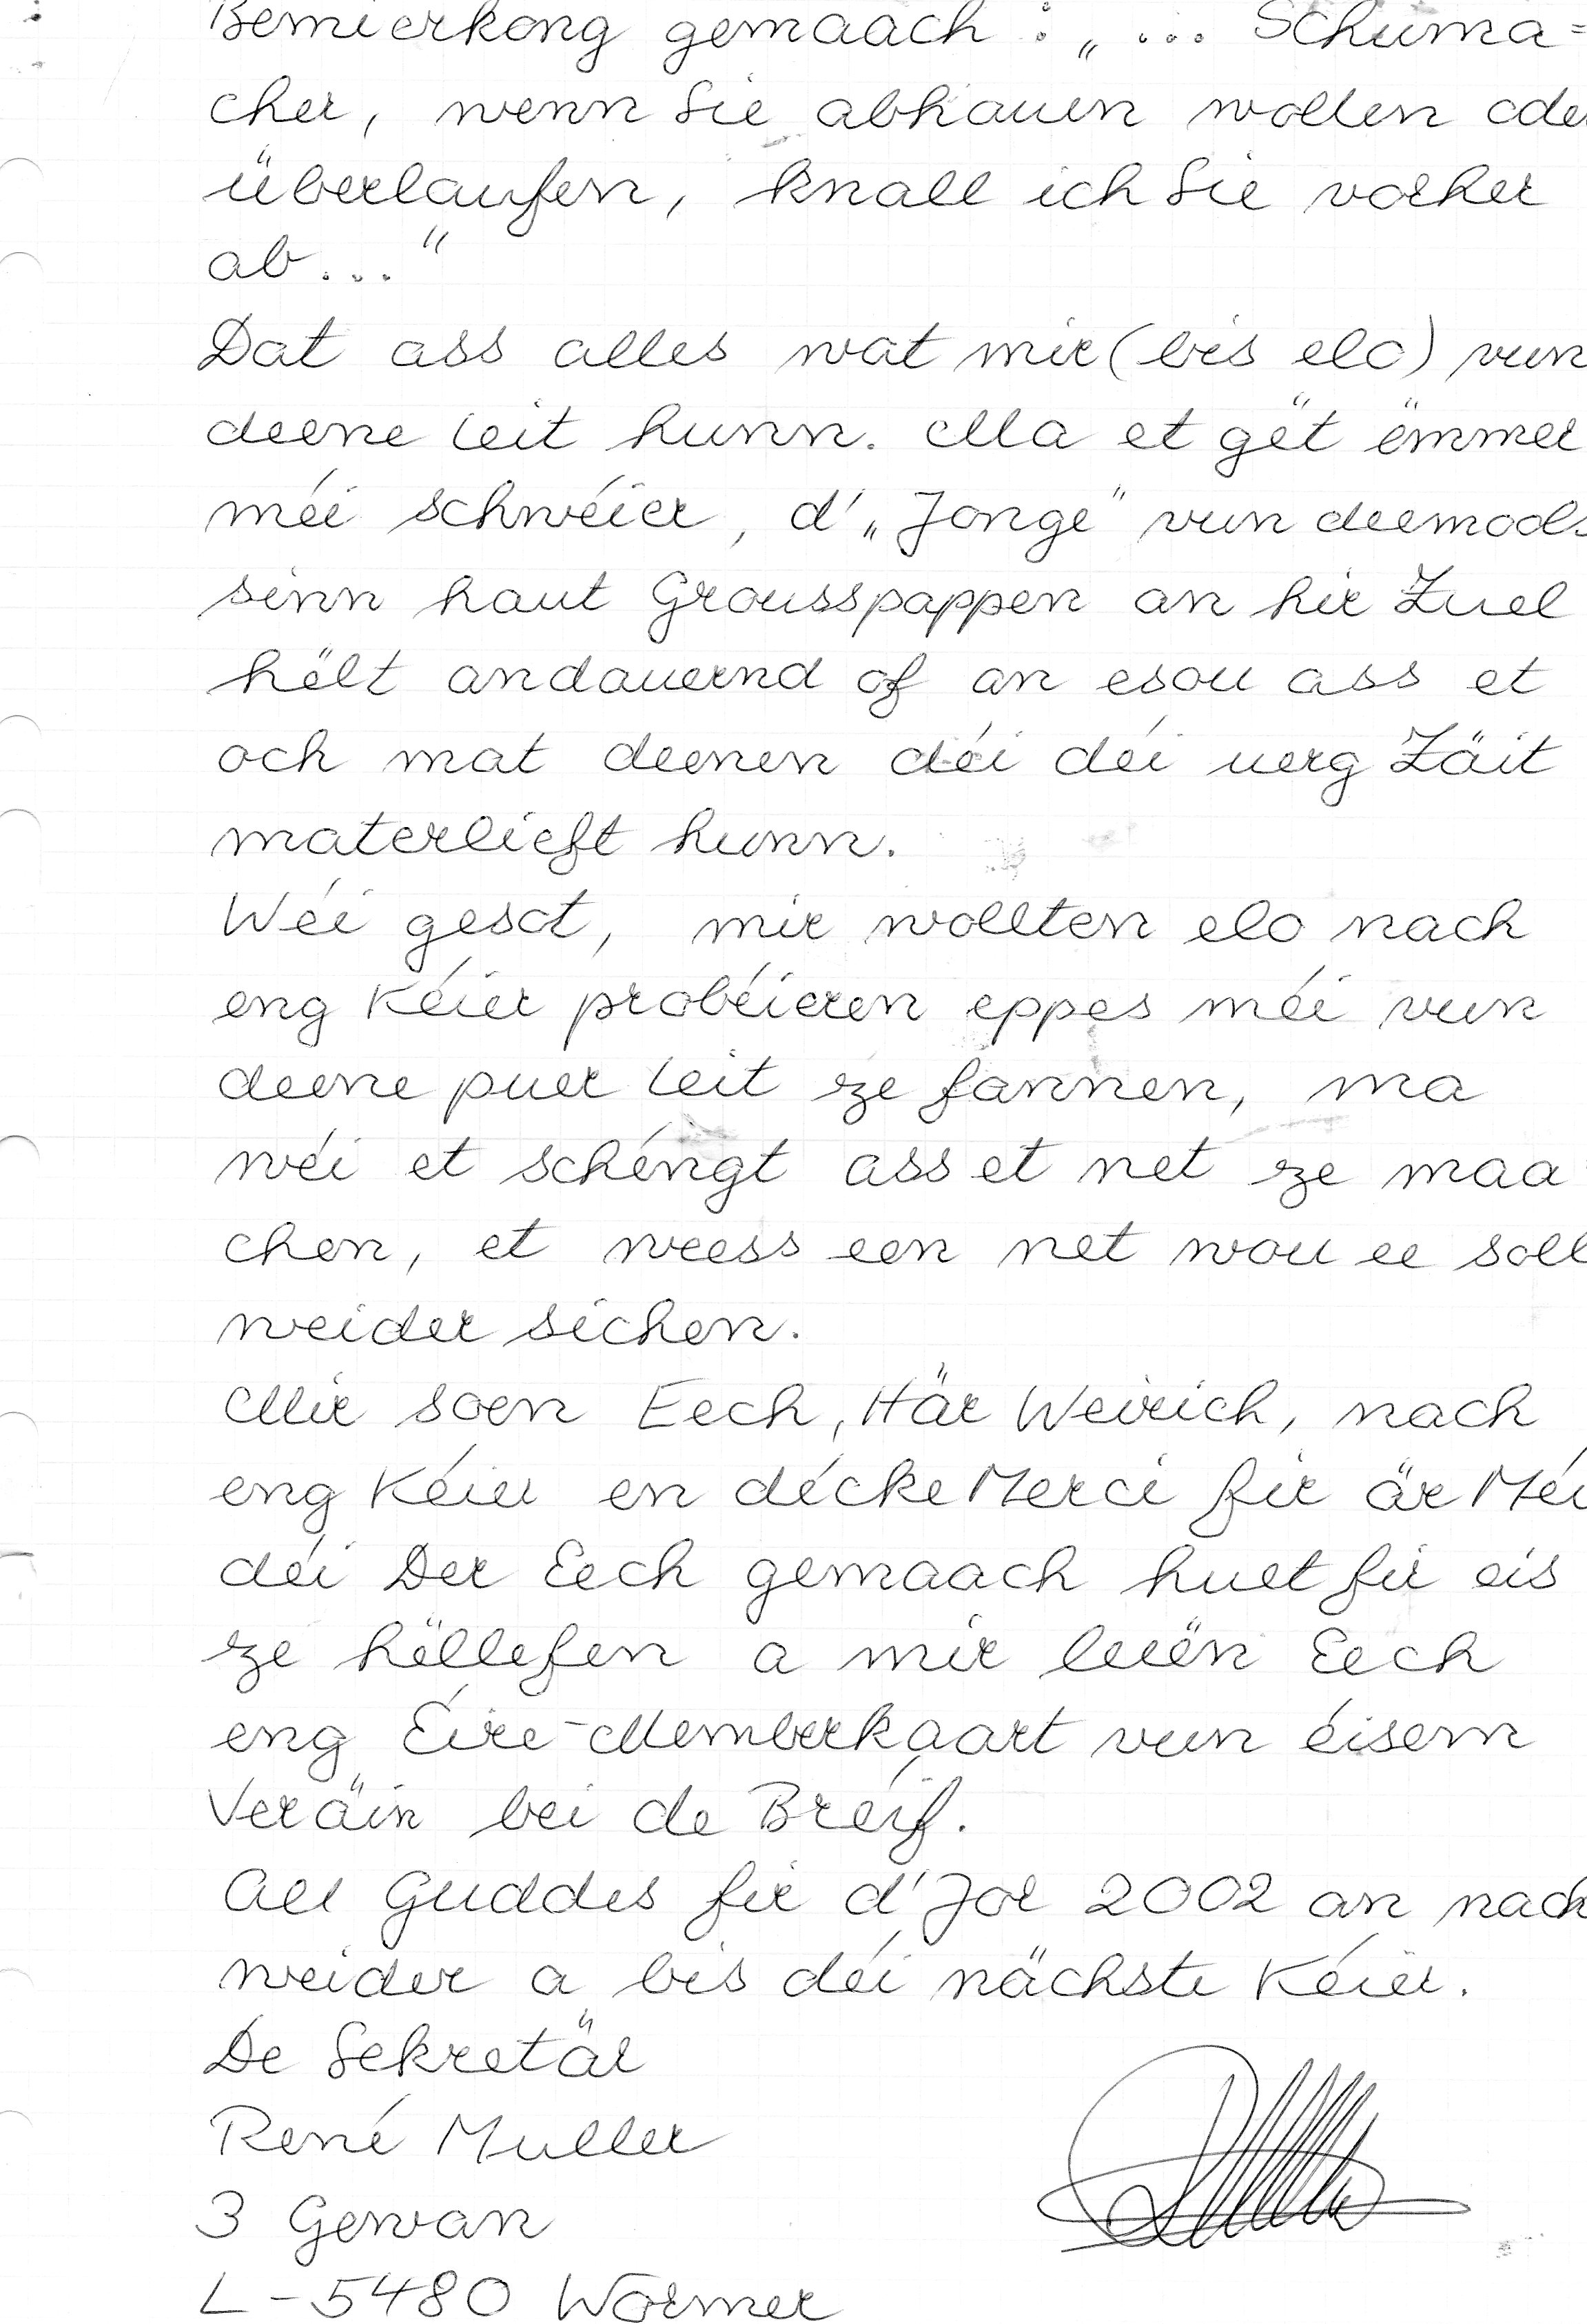 Bemierkong gemaach : „ ... Schuma=
cher, wenn Sie abhauen wollen ode
überlaufen, knall ich Sie vorher
ab ... “
Dat ass alles wat mir (bis elo) vun
deene Leit hunn. Ma et gët ëmmer
méi schwéier, d'„Jonge“ vun deemools
sinn haut Grousspappen an hir Zuel
hëlt andauernd of an esou ass et
och mat deenen déi déi uerg Zäit
materlieft hunn.
Wéi gesot, mir wollten elo nach
eng Kéier probéieren eppes méi vun
deene puer Leit ze fannen, ma
wéi et schéngt ass et net ze maa-
chen, et weess een net wou ee soll
weider sichen.
Mir soen Eech, Här Weirich, nach
eng Kéier en décke Merci fir är Méi
déi Der Eech gemaach huet fir eis
ze hëllefen a mir leeën Eech
eng Éire-Memberkaart vun éisem
Veräin bei de Bréif.
All Guddes fir d'Jor 2002 an nach
weider a bis déi nächste Kéier.
De Sekretär
René Muller
3 Gewan
L-5480 Wormer